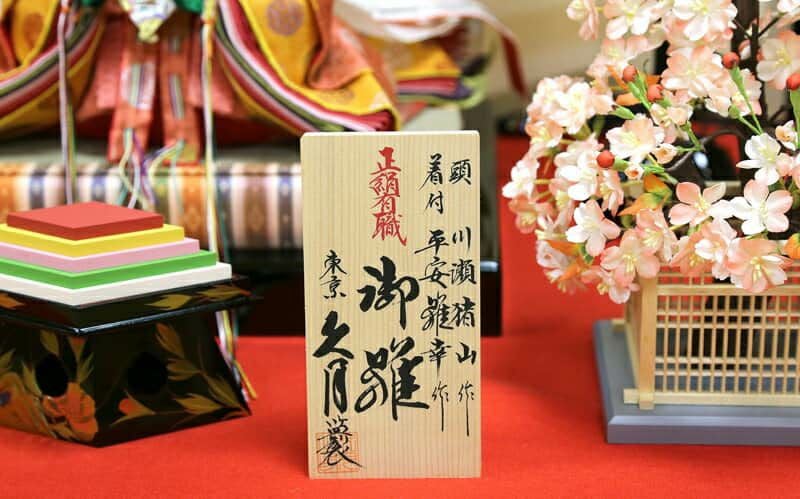 頭 川瀬猪山作
着付 平安雛幸作
正絹有職
御雛
東京 久月謹製